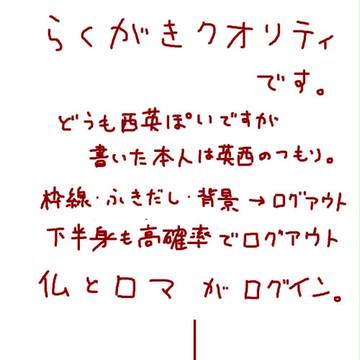 らくがきクオリティ
です。
どうも西英ぽいですが
書いた本人は英西のつもり。
枠線・ふきだし・背景→ログアウト
下半身も高確率でログアウト
仏とロマがログイン。